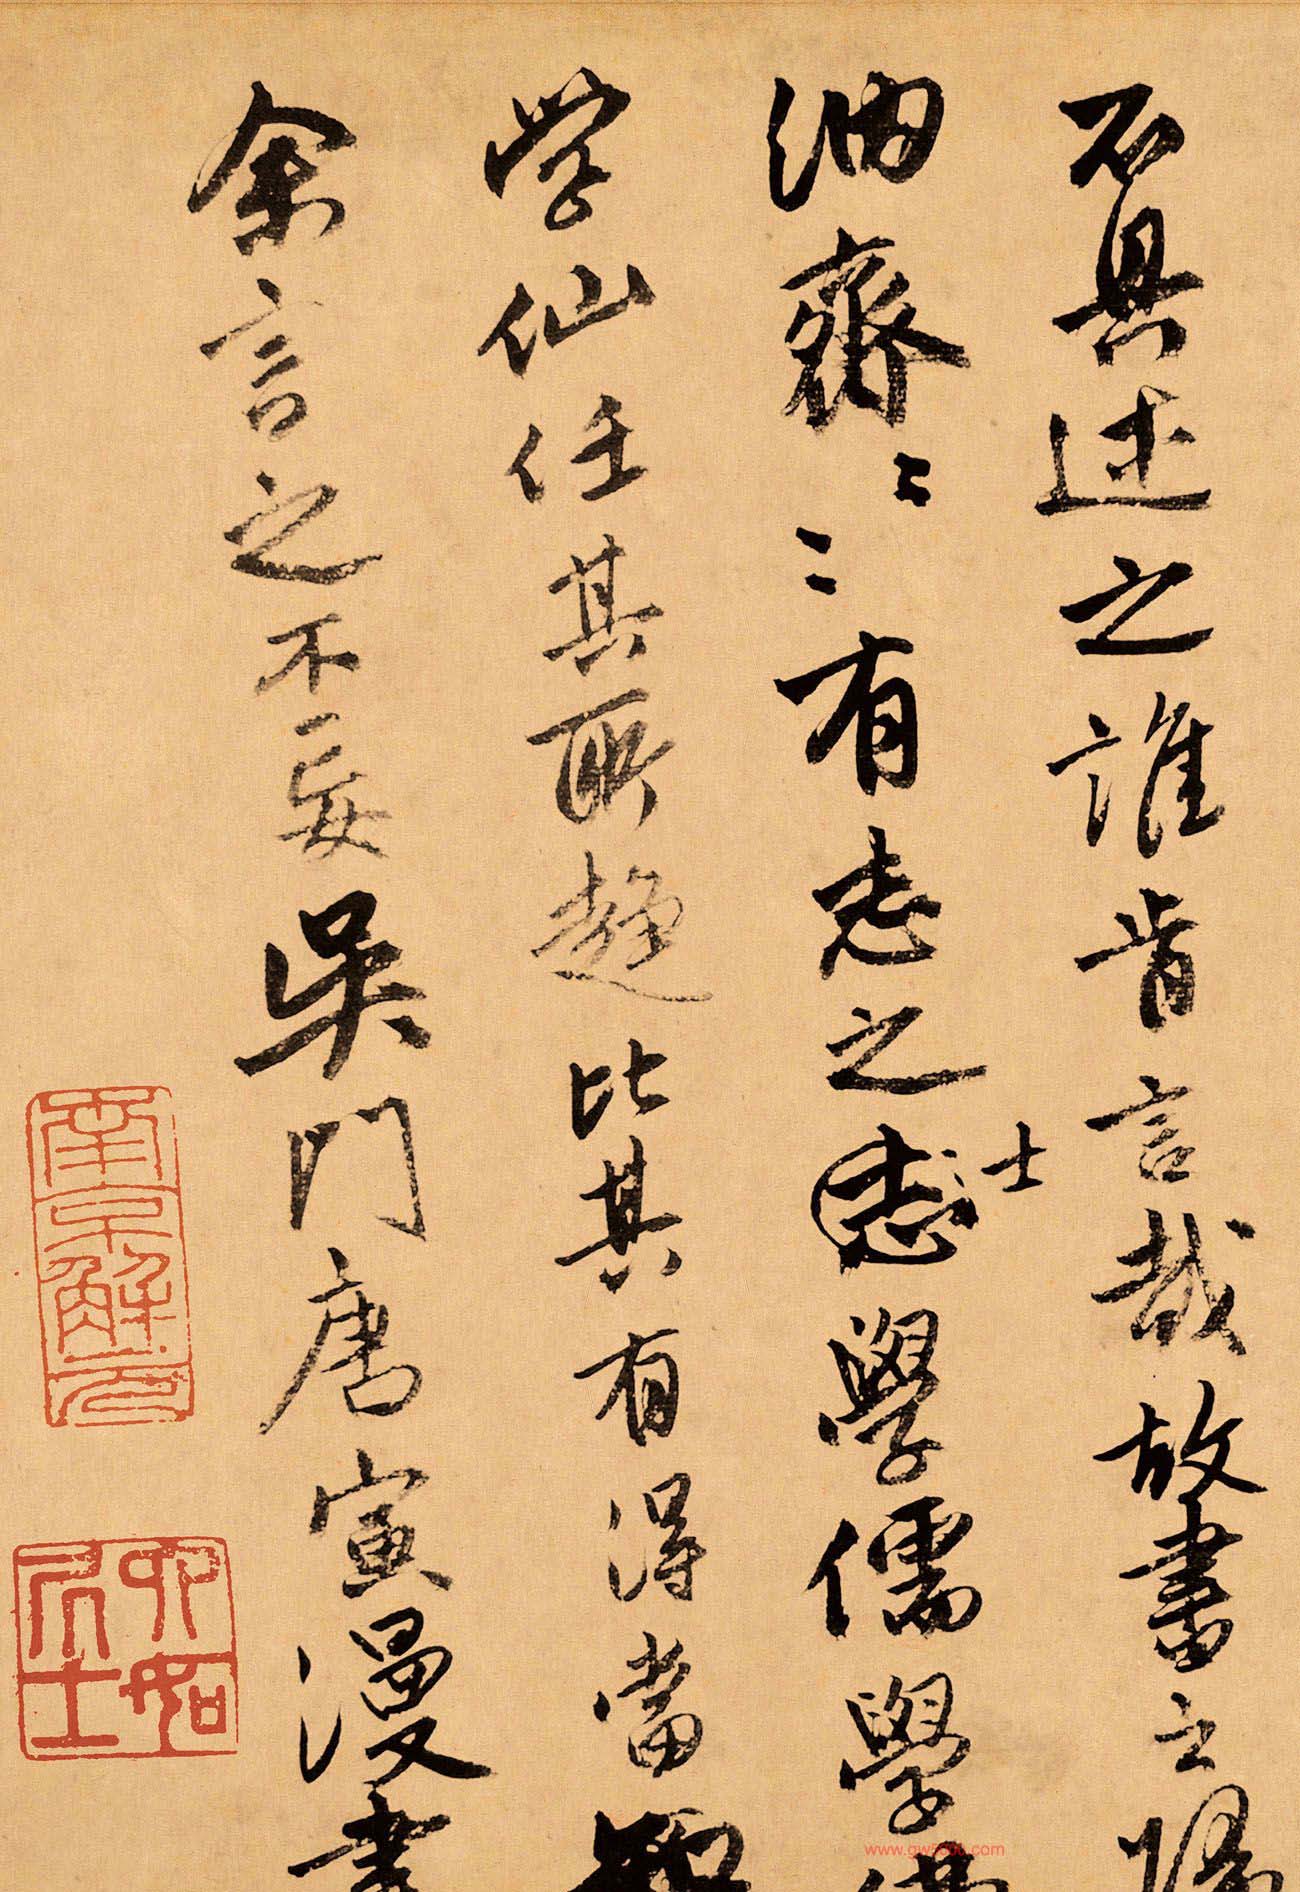 不具述之誰肯言哉故書之歸
洞齋〻〻有志之志學儒學佛
士
学仙任其所趨比其有得當知
余言之不妄吳門唐寅漫書
南京解元
六如居士
www.gw5000.com